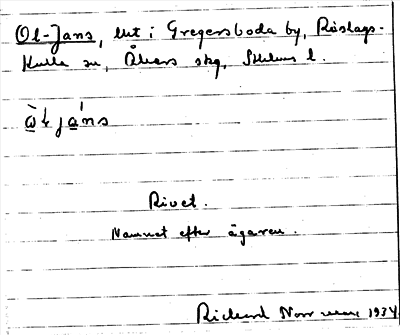 Ol-Jans, lut i Gregersboda by, Roslags-
Kulla sn, Åkers skg, Sthlms l.
ὼł jáns
Rivet.
Namnet efter ägaren.
Richard Norrman 1934